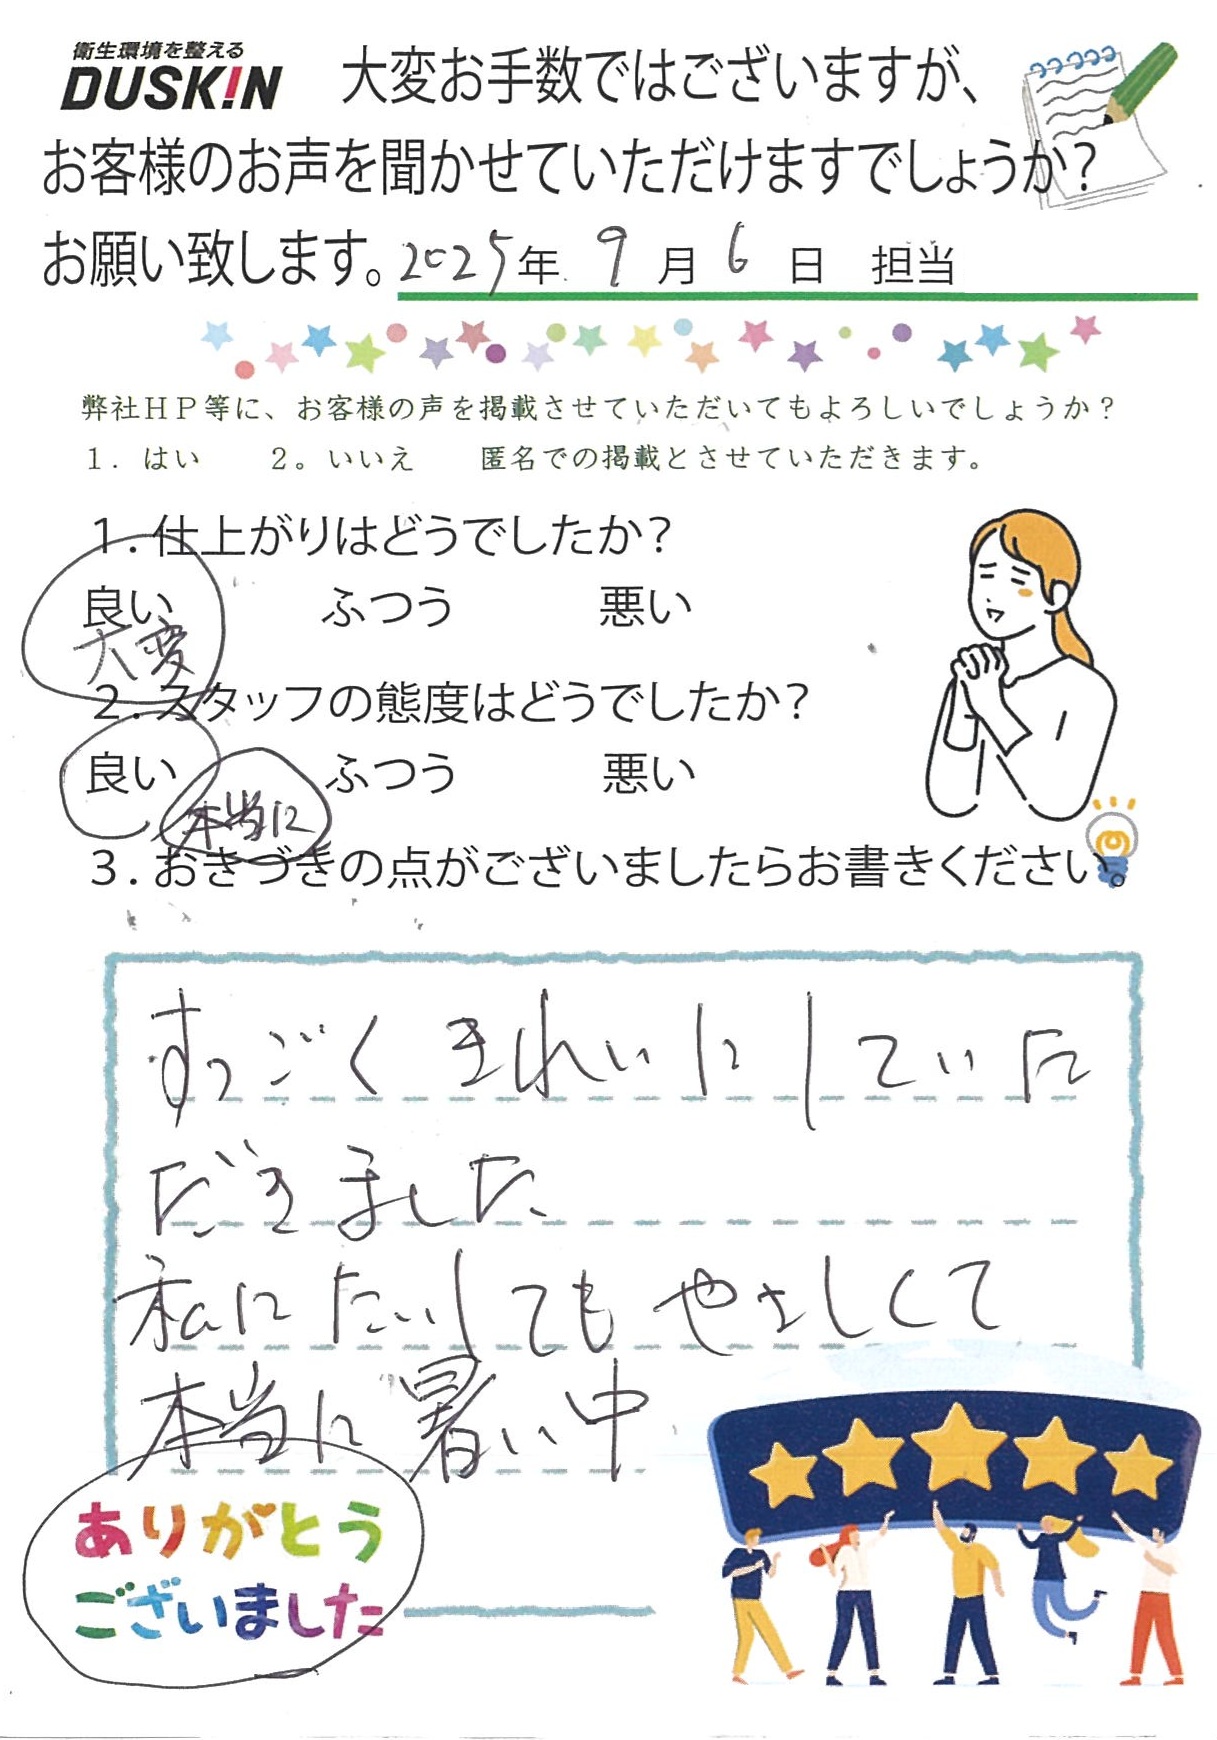 衛生環境を整える
DUSKIN 大変お手数ではございますが、
お客様のお声を聞かせていただけますでしょうか?
お願い致します。2025年 9月 6日 担当
弊社HP等に、お客様の声を掲載させていただいてもよろしいでしょうか?
1．はい 2。いいえ 匿名での掲載とさせていただきます。
1．仕上がりはどうでしたか?
良い ふつう 悪い
大変
2．スタッフの態度はどうでしたか?
良い ふつう 悪い
本当に
3．おきづきの点がございましたらお書きください。
すっごくきれいにしていた
だきました
私にたいしてもやさしくて
本当に暑い中
ありがとう
ございました